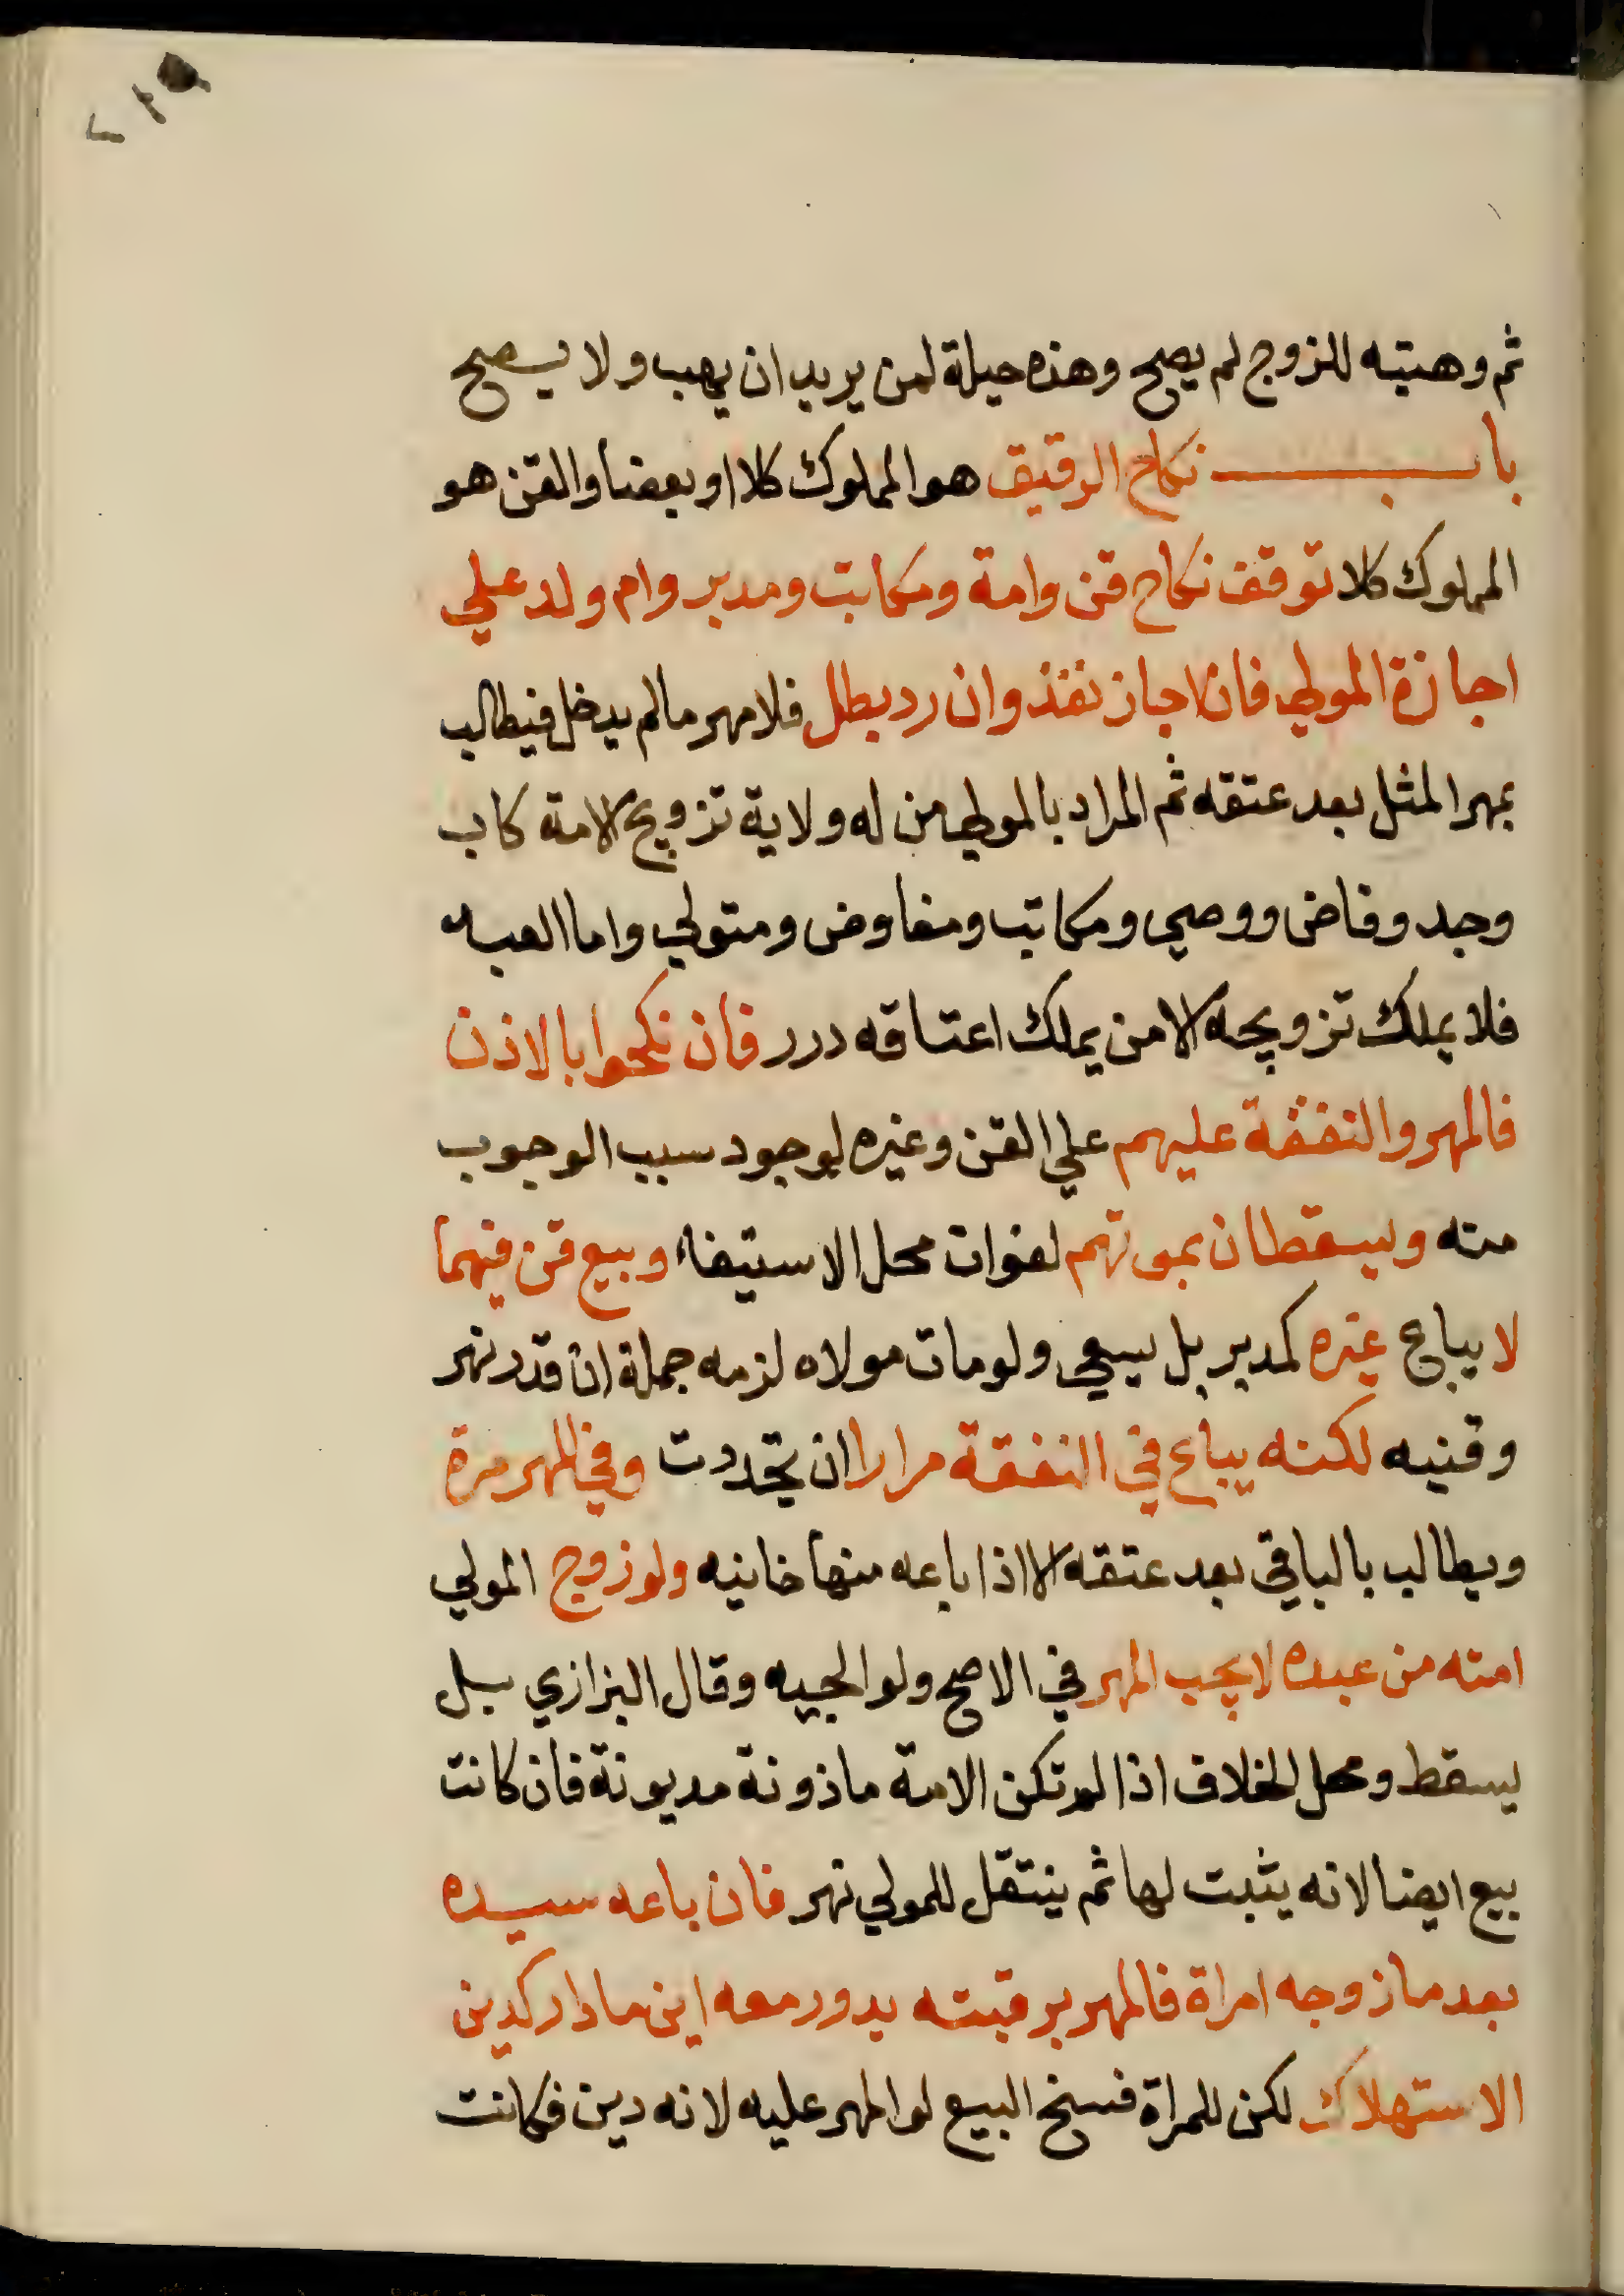 ٢١٩
ثم وهبته للزوج لم يصح وهذه حيلة لمن يريد ان يهب ولا يصح
باب نكاح الرقيق هو المملوك كلا او بعضا والقن هو
المملوك كلا توقف نكاح قن وامة ومكاتب ومدبر وام ولد علي
اجازة المولي فان اجاز نفذ وان رد بطل فلا مهر مالم يدخل فيطالب
بمهر المثل بعد عتقه ثم المراد بالمولي من له ولاية تزويج الامة كاب
وجد وقاض ووصي ومكاتب ومفاوض ومتولي واما العبد
فلا يملك تزويجه الا من يملك اعتاقه درر فان نكحوا بالاذن
فالمهر والنفقة عليهم علي القن وغيره لوجود سبب الوجوب
منه ويسقطان بموتهم لفوات محل الاستيفاء وبيع قن فيهما
لا يباع غيره كمدبر بل يسعي ولو مات مولاه لزمه جملة ان قدر نهر
وقنيه لكنه يباع في النفقة مرارا ان تجددت وفي المهر مرة
ويطالب بالباقي بعد عتقه الا اذا باعه منها خانيه ولو زوج المولي
امته من عبده لا يجب المهر في الاصح ولوالجيه وقال البزازي بل
يسقط ومحل الخلاف اذا لم تكن الامة ماذونة مديونة فان كانت
بيع ايضا لانه يثبت لها ثم ينتقل للمولي نهر فان باعه سيده
بعد ما زوجه امراة فالمهر برقبته يدور معه اين ما دار كدين
الاستهلاك لكن للمراة فسخ البيع لو المهر عليه لانه دين فكانت